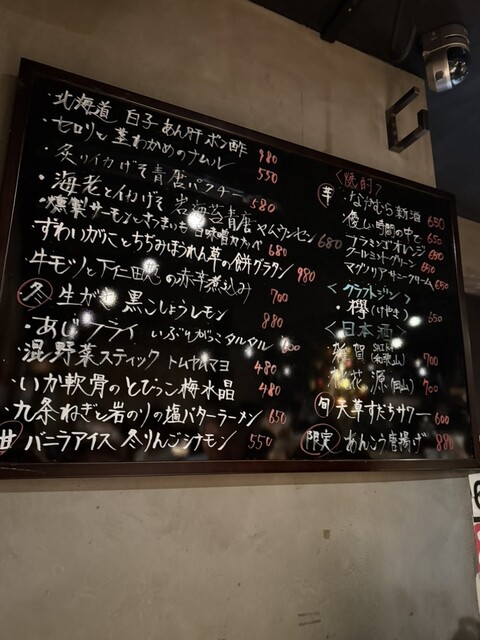 ・北海道 白子 あん肝 ポン酢 980
・セロリと茎わかめのナムル 550
・炙りイカげそ青唐パクチー 580
・海老とイカげそ 岩海苔青唐ヤムウンセン 680
・燻製サーモンとさつまいも 680
ずわいがにとちぢみほうれん草の餅グラタン 980
・牛モツと下仁田葱の赤辛煮込み 700
冬 生がき 黒こしょうレモン 880
・あじフライ いぶりがっこタルタル 600
・混野菜スティック トムヤムマヨ 480
・いか軟骨のとびっこ梅水晶 480
・九条ねぎと岩のりの塩バターラーメン 650
甘 バニラアイス 冬りんごシナモン 550
<焼酎>
芋 ・なかむら新酒 650
・優しい時間の中で 650
・フラミンゴオレンジ 650
・クールミントグリーン 650
マグノリアサニークリーム 650
<クラフトジン>
・欅(けやき) 650
<日本酒>
雑賀 (和歌山) 700
花源 (岡山) 700
旬 天草すだちサワー 600
限定 あんこう唐揚げ 880